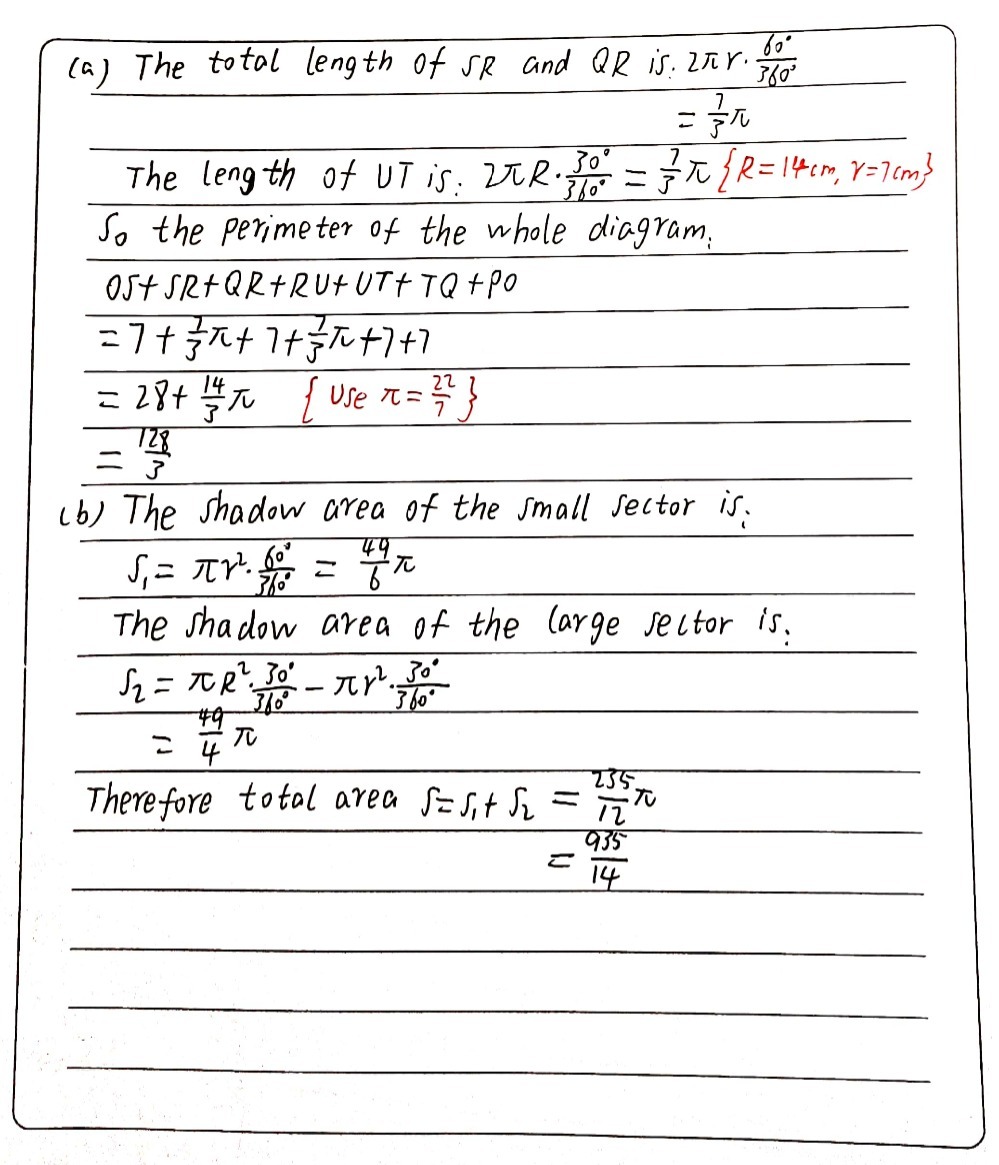 (a) The total length of SR and QR is: 2πr·60°/360°
= 7/3π
The length of UT is: 2πR·30°/360° = 7/3π {R=14cm, r=7cm}
So the perimeter of the whole diagram:
OS+SR+QR+RU+UT+TQ+PO
=7+7/3π+7+7/3π+7+7
= 28+14/3π {Use π=22/7}
= 128/3
(b) The shadow area of the small sector is:
S₁= πr²·60°/360° = 49/6π
The shadow area of the large sector is:
S₂ = πR²·30°/360° − πr²·30°/360°
= 49/4π
Therefore total area S=S₁+S₂ = 235/12π
= 935/14